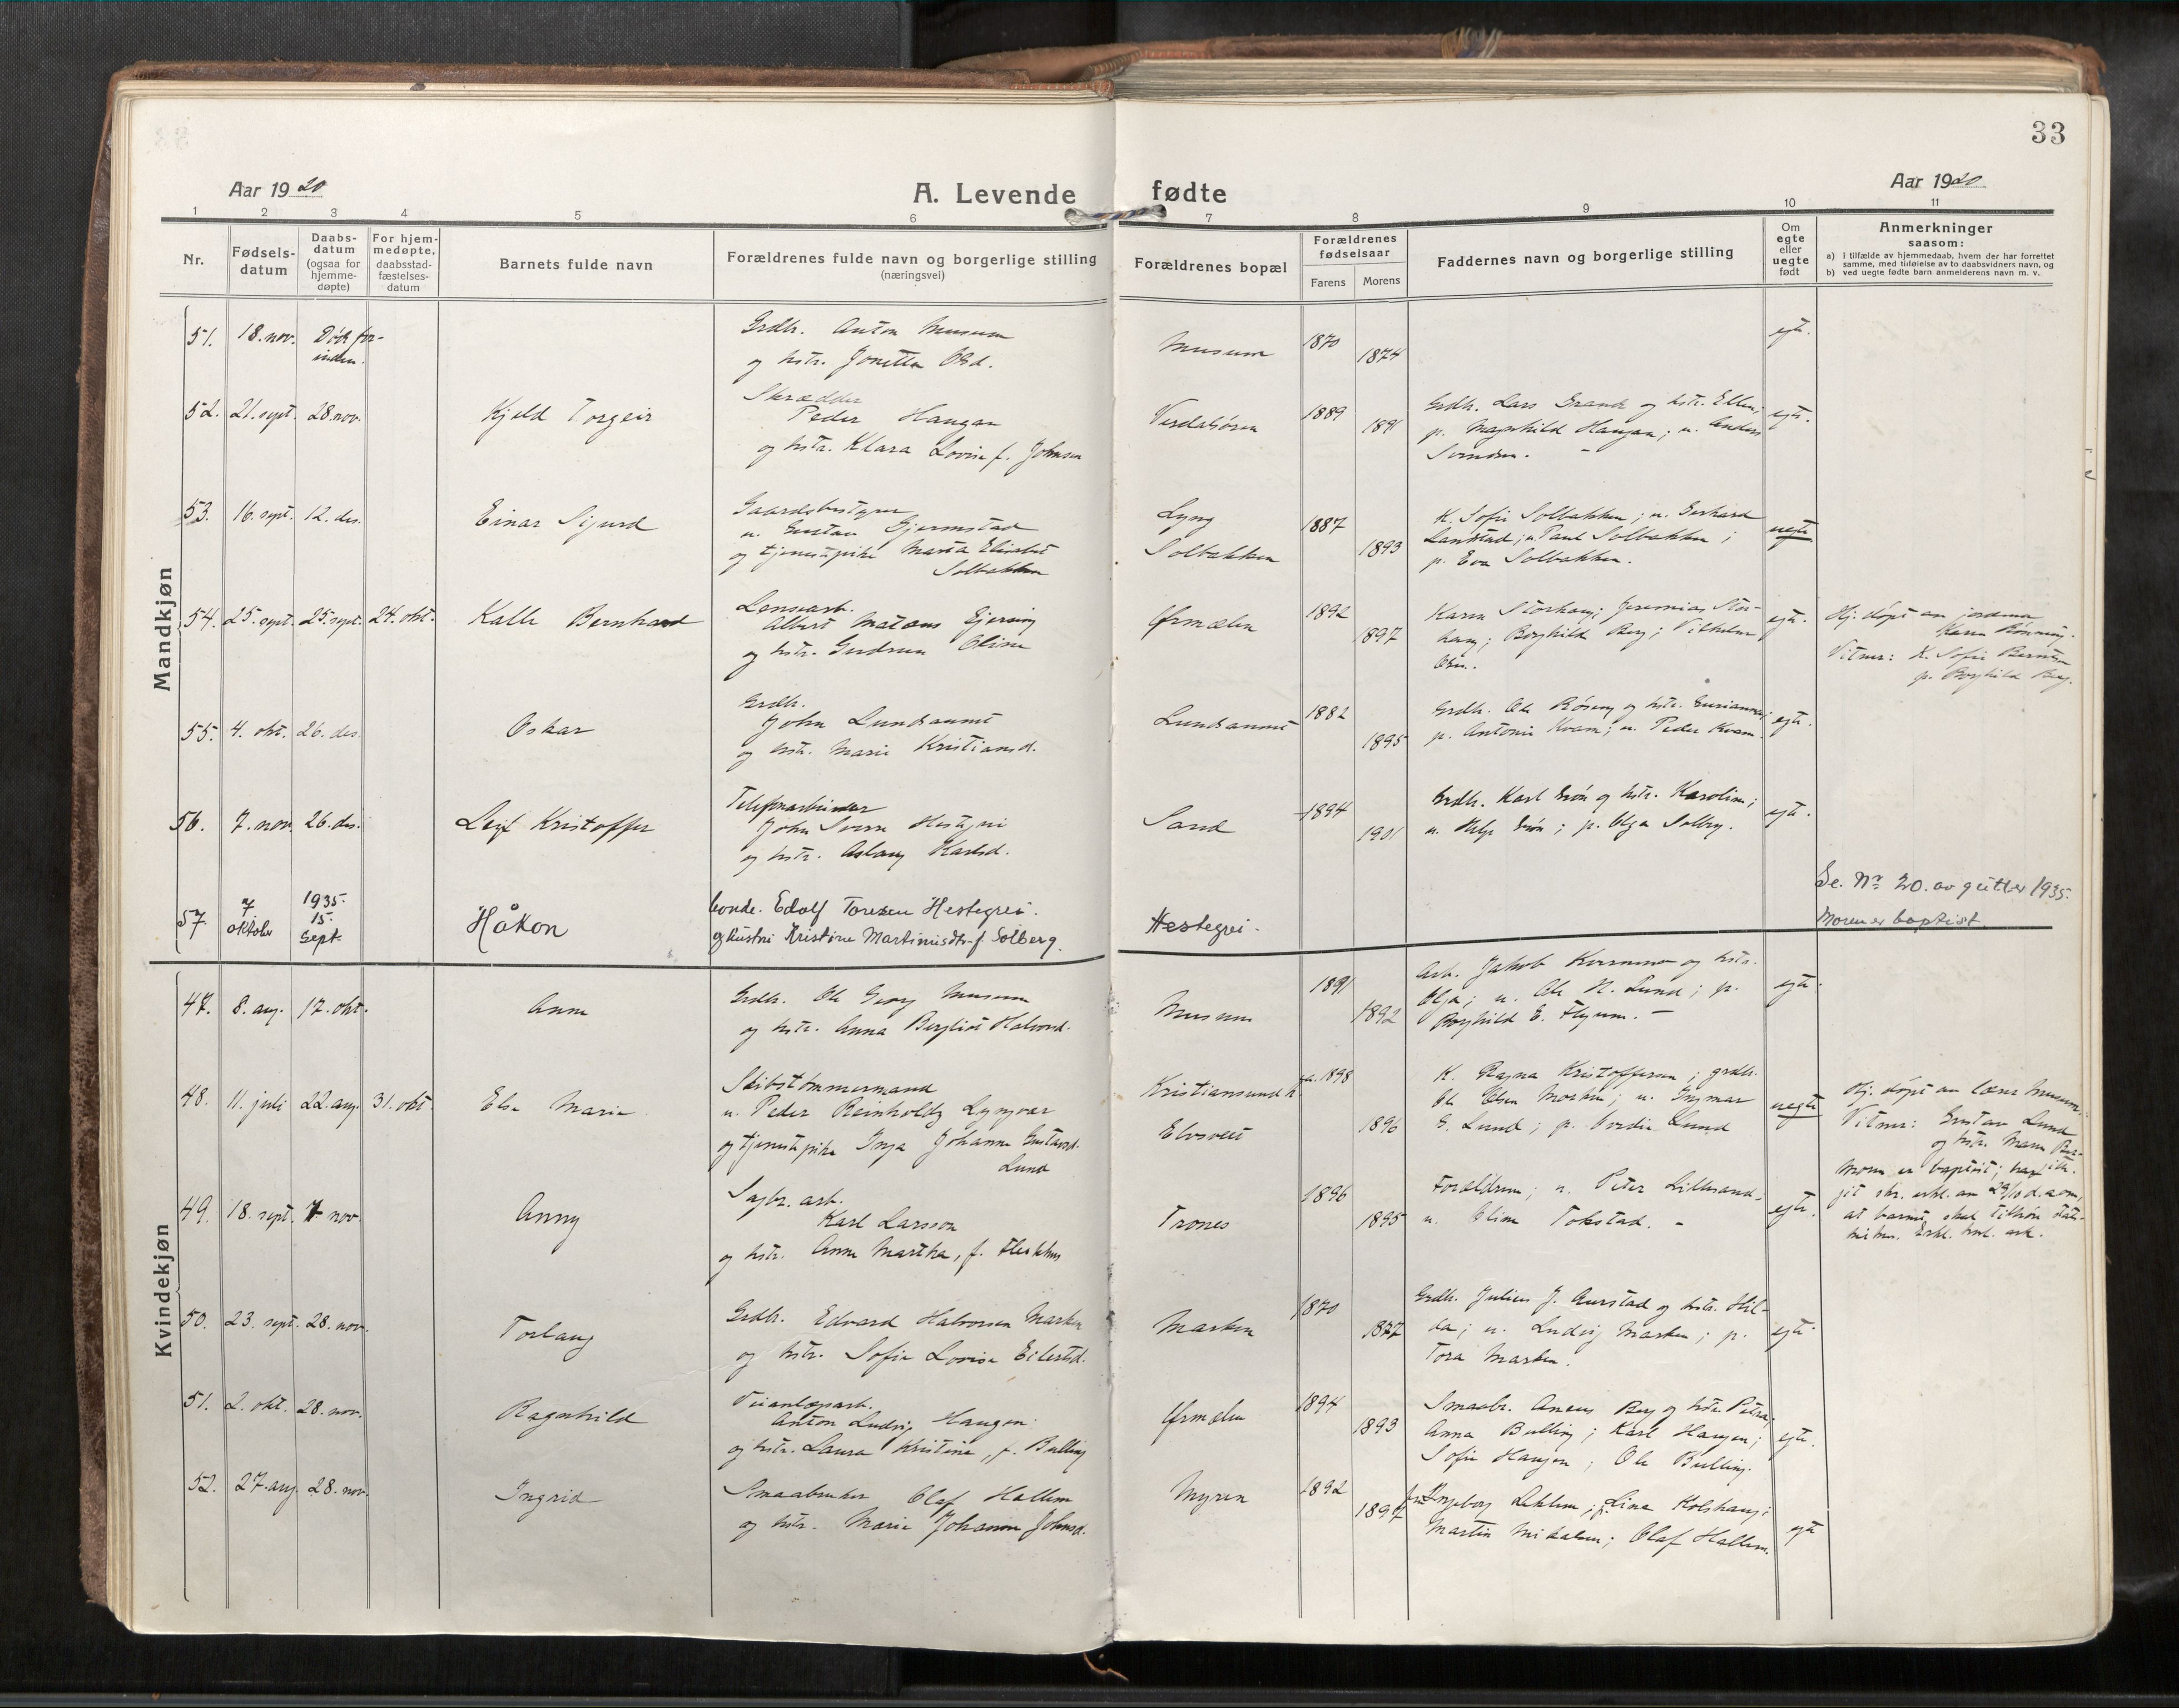 33
Aar 1920
A. Levende fødte
Aar 1920
1 2 3 4 5 6 7 8 9 10 11
Nr.
Fødsels-
datum
Daabs-
datum
(ogsaa for
hjemme-
døpte)
For hjem-
medøpte,
daabsstad-
fæstelses-
datum
Barnets fulde navn
Forældrenes fulde navn og borgerlige stilling
(næringsvei)
Forældrenes bopæl
Forældrenes
fødselsaar
Farens Morens
Faddernes navn og borgerlige stilling
Om
egte
eller
uegte
født
Anmerkninger
saasom:
a) i tilfælde av hjemmedaab, hvem der har forrettet
samme, med tilføielse av to daabsvidners navn, og
b) ved uegte fødte barn anmelderens navn m. v.
Mandkjøn
51. 18. nov. Død for-
inden.
Grdbr. Anton Musum
og hstr. Jonetta Olsd.
Musum 1870 1874 egte.
52. 21. sept. 28. nov. Kjeld Torgeir
Skrædder
Peder Haugan
og hstr. Klara Lovise f. Johnsen
Verdalsøren 1889 1891
Grdbr. Lars Grande og hstr. Ellen;
p. Magnhild Haugan; u. Anders
Svendsen. -
egte.
53. 16. sept. 12. des. Einar Sigurd
Gaardsbestyrer
u. Gustav Gjermstad
og tjenestepike Marta Elisabet
Solbakken
Lyng
Solbakken
1887 1893
K. Sofie Solbakken; u. Gerhard
Landstad; u. Paul Solbakken;
p. Eva Solbakken.
uegte
54. 25. sept. 25. sept. 24. okt. Kalle Bernhard
Lensearb.
Albert Mataus Gjersing
og hstr. Gudrun Oline
Ørmelen 1892 1897
Karen Storhaug; Jeremias Stor-
haug; Borghild Berg; Vilhelm
egte.
Hj. døpt av jordmor
Karen Rønning.
Vitner: K. Sofie Berntsen
p. Borghild Berg.
55. 4. okt. 26. des. Oskar
Grdbr.
John Lundsaunet
og hstr. Marie Kristiansd.
Lundsaunet 1882 1895
Grdbr. Ole Røseng og hstr. Gurianna;
p. Antonie Kvam; u. Peder Kvam
egte.
56. 7. nov. 26. des. Leif Kristoffer
Telefonarbeider
John Sverre Hestegrei
og hstr. Aslaug Karlsd.
Sand 1894 1901
Grdbr. Karl Grøn og hstr. Karoline;
u. Helge Grøn; p. Olga Solberg.
egte.
57. 7 oktober 1935. 15. Sept. Håkon
bonde. Edolf Toresen Hestegrei.
og hustru Kristine Martinusdtr. f. Solberg.
Hestegrei.
Se. Nr 20. av gutter 1935.
Moren er baptist.
Kvindekjøn
47. 8. aug. 17. okt. Anna
Grdbr. Ole Georg Musum
og hstr. Anna Bergliot Halvorsd.
Musum 1891 1892
Arb. Jakob Kvernmo og hstr.
Olga; u. Ole N. Lund; p.
Borghild E. Flyum. -
egte.
48. 11. juli 22. aug. 31. okt. Else Marie
Skibstømmermand
u. Peder Reinholdz Lyngvær
og tjenestepike Inga Johanne Gustavsd.
Lund
Kristiansund N.
Elvsveet
ca. 1898 1896
K. Ragna Kristoffersen; grdbr.
Ole Olsen Morken; u. Ingmar
G. Lund; p. Verdie Lund
uegte
Hj. døpt av lærer Musum.
Vitner: Gustav Lund
og hstr. Maren
49. 18. sept. 7. nov. Anny
Sagbr. arb.
Karl Larsson
og hstr. Anna Martha, f. Fleskhus
Trones 1896 1895
Forældrene; u. Peter Lillesand;
u. Oline Tokstad. -
egte.
Moren er baptist; har
git skr. erkl. av 29/10 d. a. om,
at barnet skal tilhøre stats-
kirken. Erkl. vedl. ark.
50. 23. sept. 28. nov. Torlaug
Grdbr. Edvard Halvorsen Marken
og hstr. Sofie Lovise Eilertsd.
Marken 1870 1877
Grdbr. Julius J. Aurstad og hstr. Hil-
da; u. Ludvig Marken; p.
Tora Marken.
egte.
51. 2. okt. 28. nov. Ragnhild
Veianlægsarb.
Anton Ludvig Haugen
og hstr. Laura Kristine, f. Bulling
Ørmelen 1894 1893
Smaabr. Aneus Berg og hstr. Petra;
Anna Bulling; Karl Haugen;
Sofie Haugen; Ole Bulling.
egte.
52. 27. aug. 28. nov. Ingrid
Smaabruker Olaf Hallem
og hstr. Marie Johanna Johnsd.
Myren 1892 1897
Ingeborg Leklem; p. Lina Kolshaug;
Martin Mikalsen; Olaf Hallem.
egte